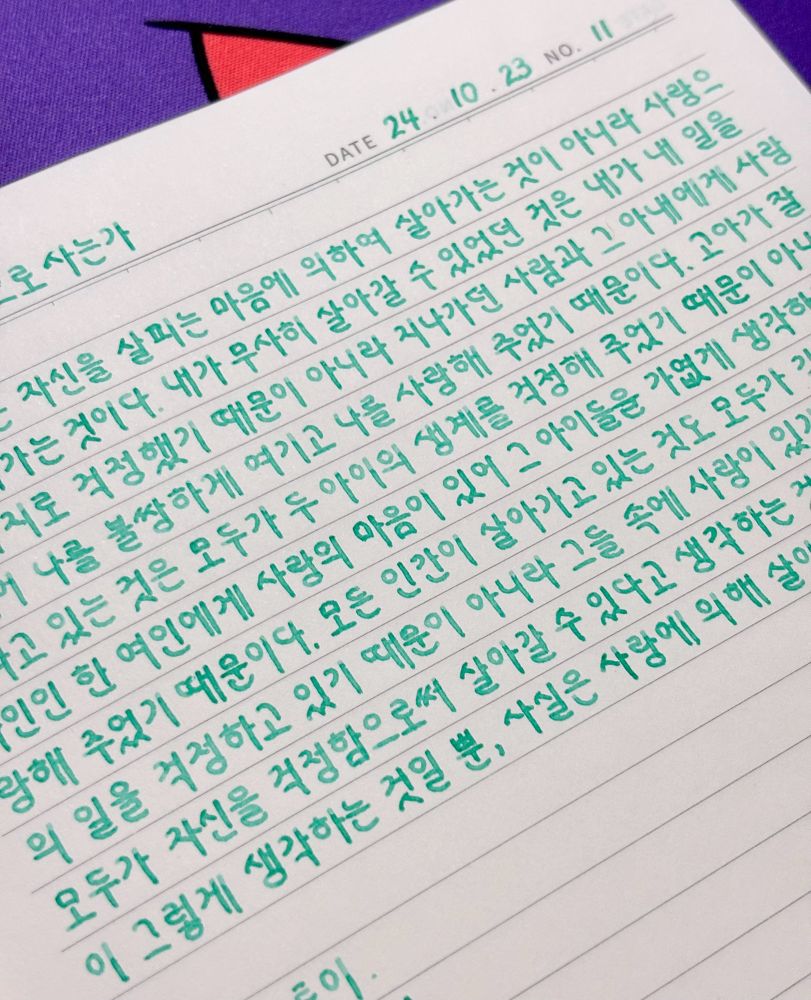 DATE 24 . 10 . 23 NO. 11
으로 사는가
는 자신을 살피는 마음에 의하여 살아가는 것이 아니라 사랑으
가는 것이다. 내가 무사히 살아갈 수 있었던 것은 내가 내 일을
지로 걱정했기 때문이 아니라 지나가던 사람과 그 아내에게 사랑
어 나를 불쌍하게 여기고 나를 사랑해 주었기 때문이다. 고아가 잘
고 있는 것은 모두가 두 아이의 생계를 걱정해 주었기 때문이 아니
타인인 한 여인에게 사랑의 마음이 있어 그 아이들을 가엾게 생각하
랑해 주었기 때문이다. 모든 인간이 살아가고 있는 것도 모두가
의 일을 걱정하고 있기 때문이 아니라 그들 속에 사랑이 있
모두가 자신을 걱정함으로써 살아갈 수 있다고 생각하는
이 그렇게 생각하는 것일 뿐, 사실은 사랑에 의해 살아